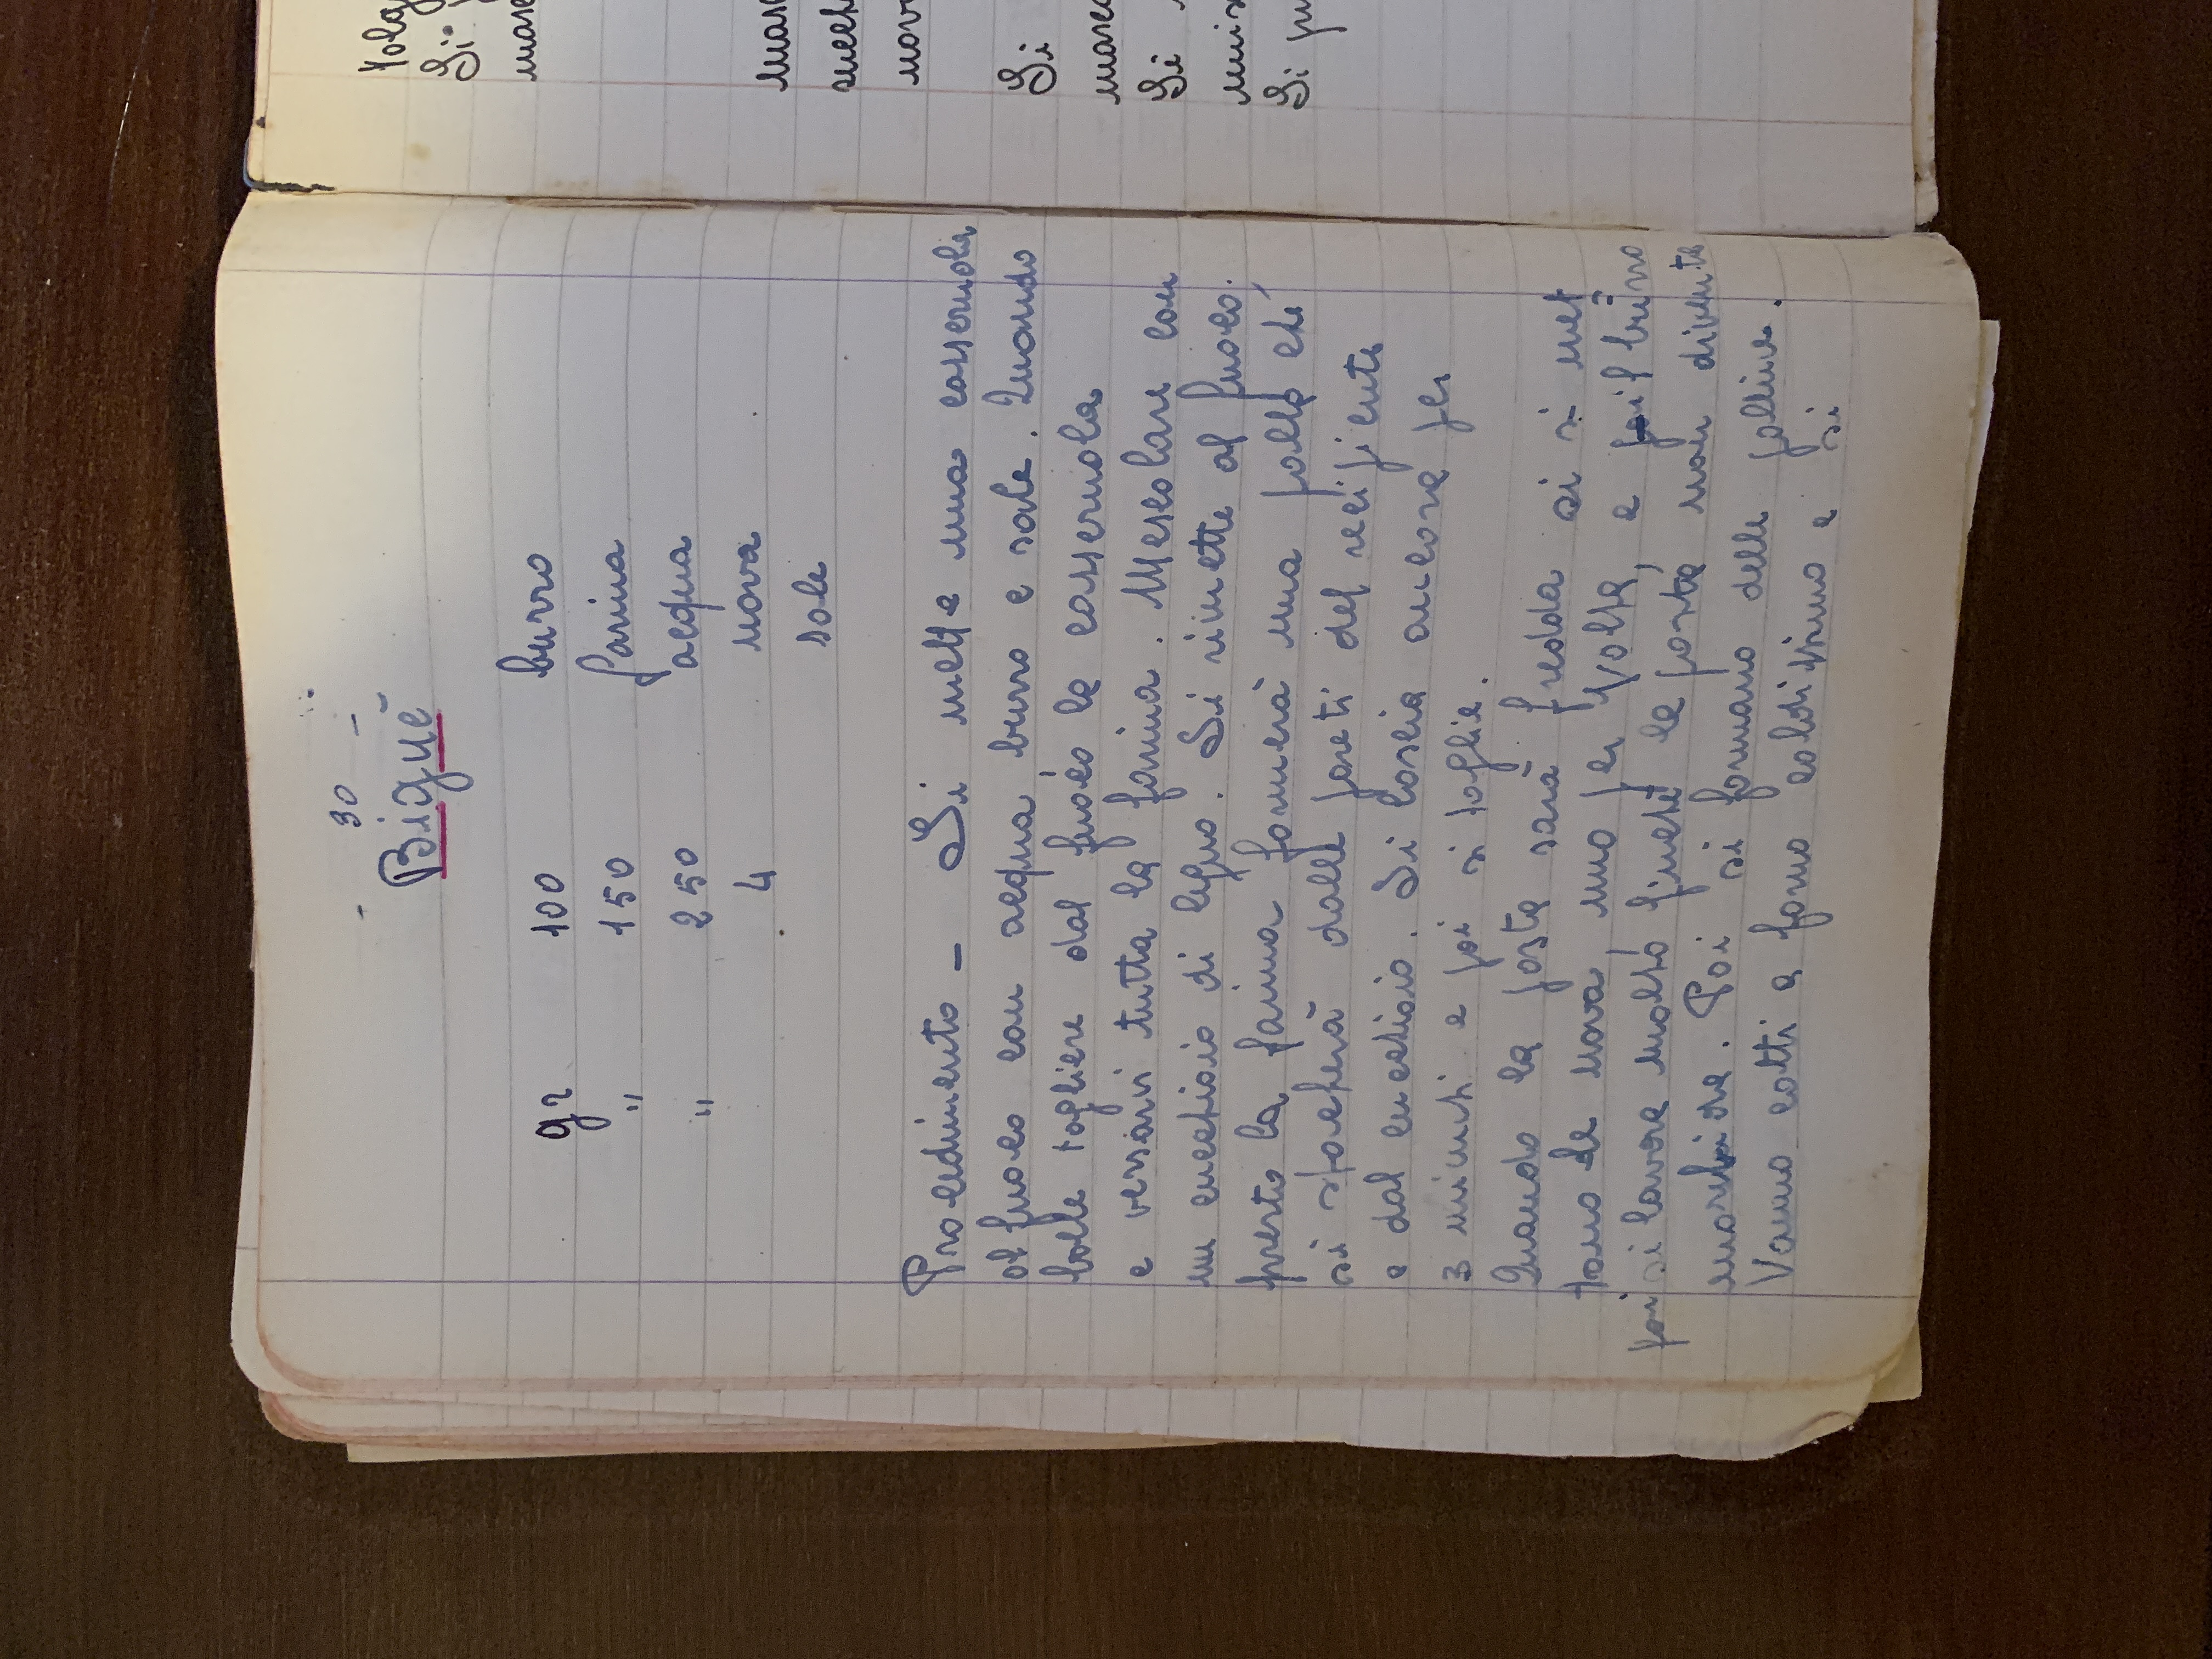 - 30 -
Biguè
gr 100 burro
" 150 farina
" 250 acqua
4 uova
sale
Procedimento - Si mette una casseruola
al fuoco con acqua, burro e sale. Quando
bolle togliere dal fuoco la casseruola
e versarvi tutta la farina. Mescolare con
un cucchiaio di legno. Si rimette al fuoco;
presto la farina formerà una palla che
si staccherà dalle pareti del recipiente
e dal cucchiaio. Si lascia ancora per
3 minuti e poi si toglie.
Quando la pasta sarà fredda si si met
tono le uova, uno per volta, e poi il burro
poi si lavora molto finchè la pasta non diventa
morbida. Poi si formano delle palline.
Vanno cotti a forno caldissimo e si
Tolg
Si
masc
masc
zucch
uova
Si
masc
Si
mis
Si pu